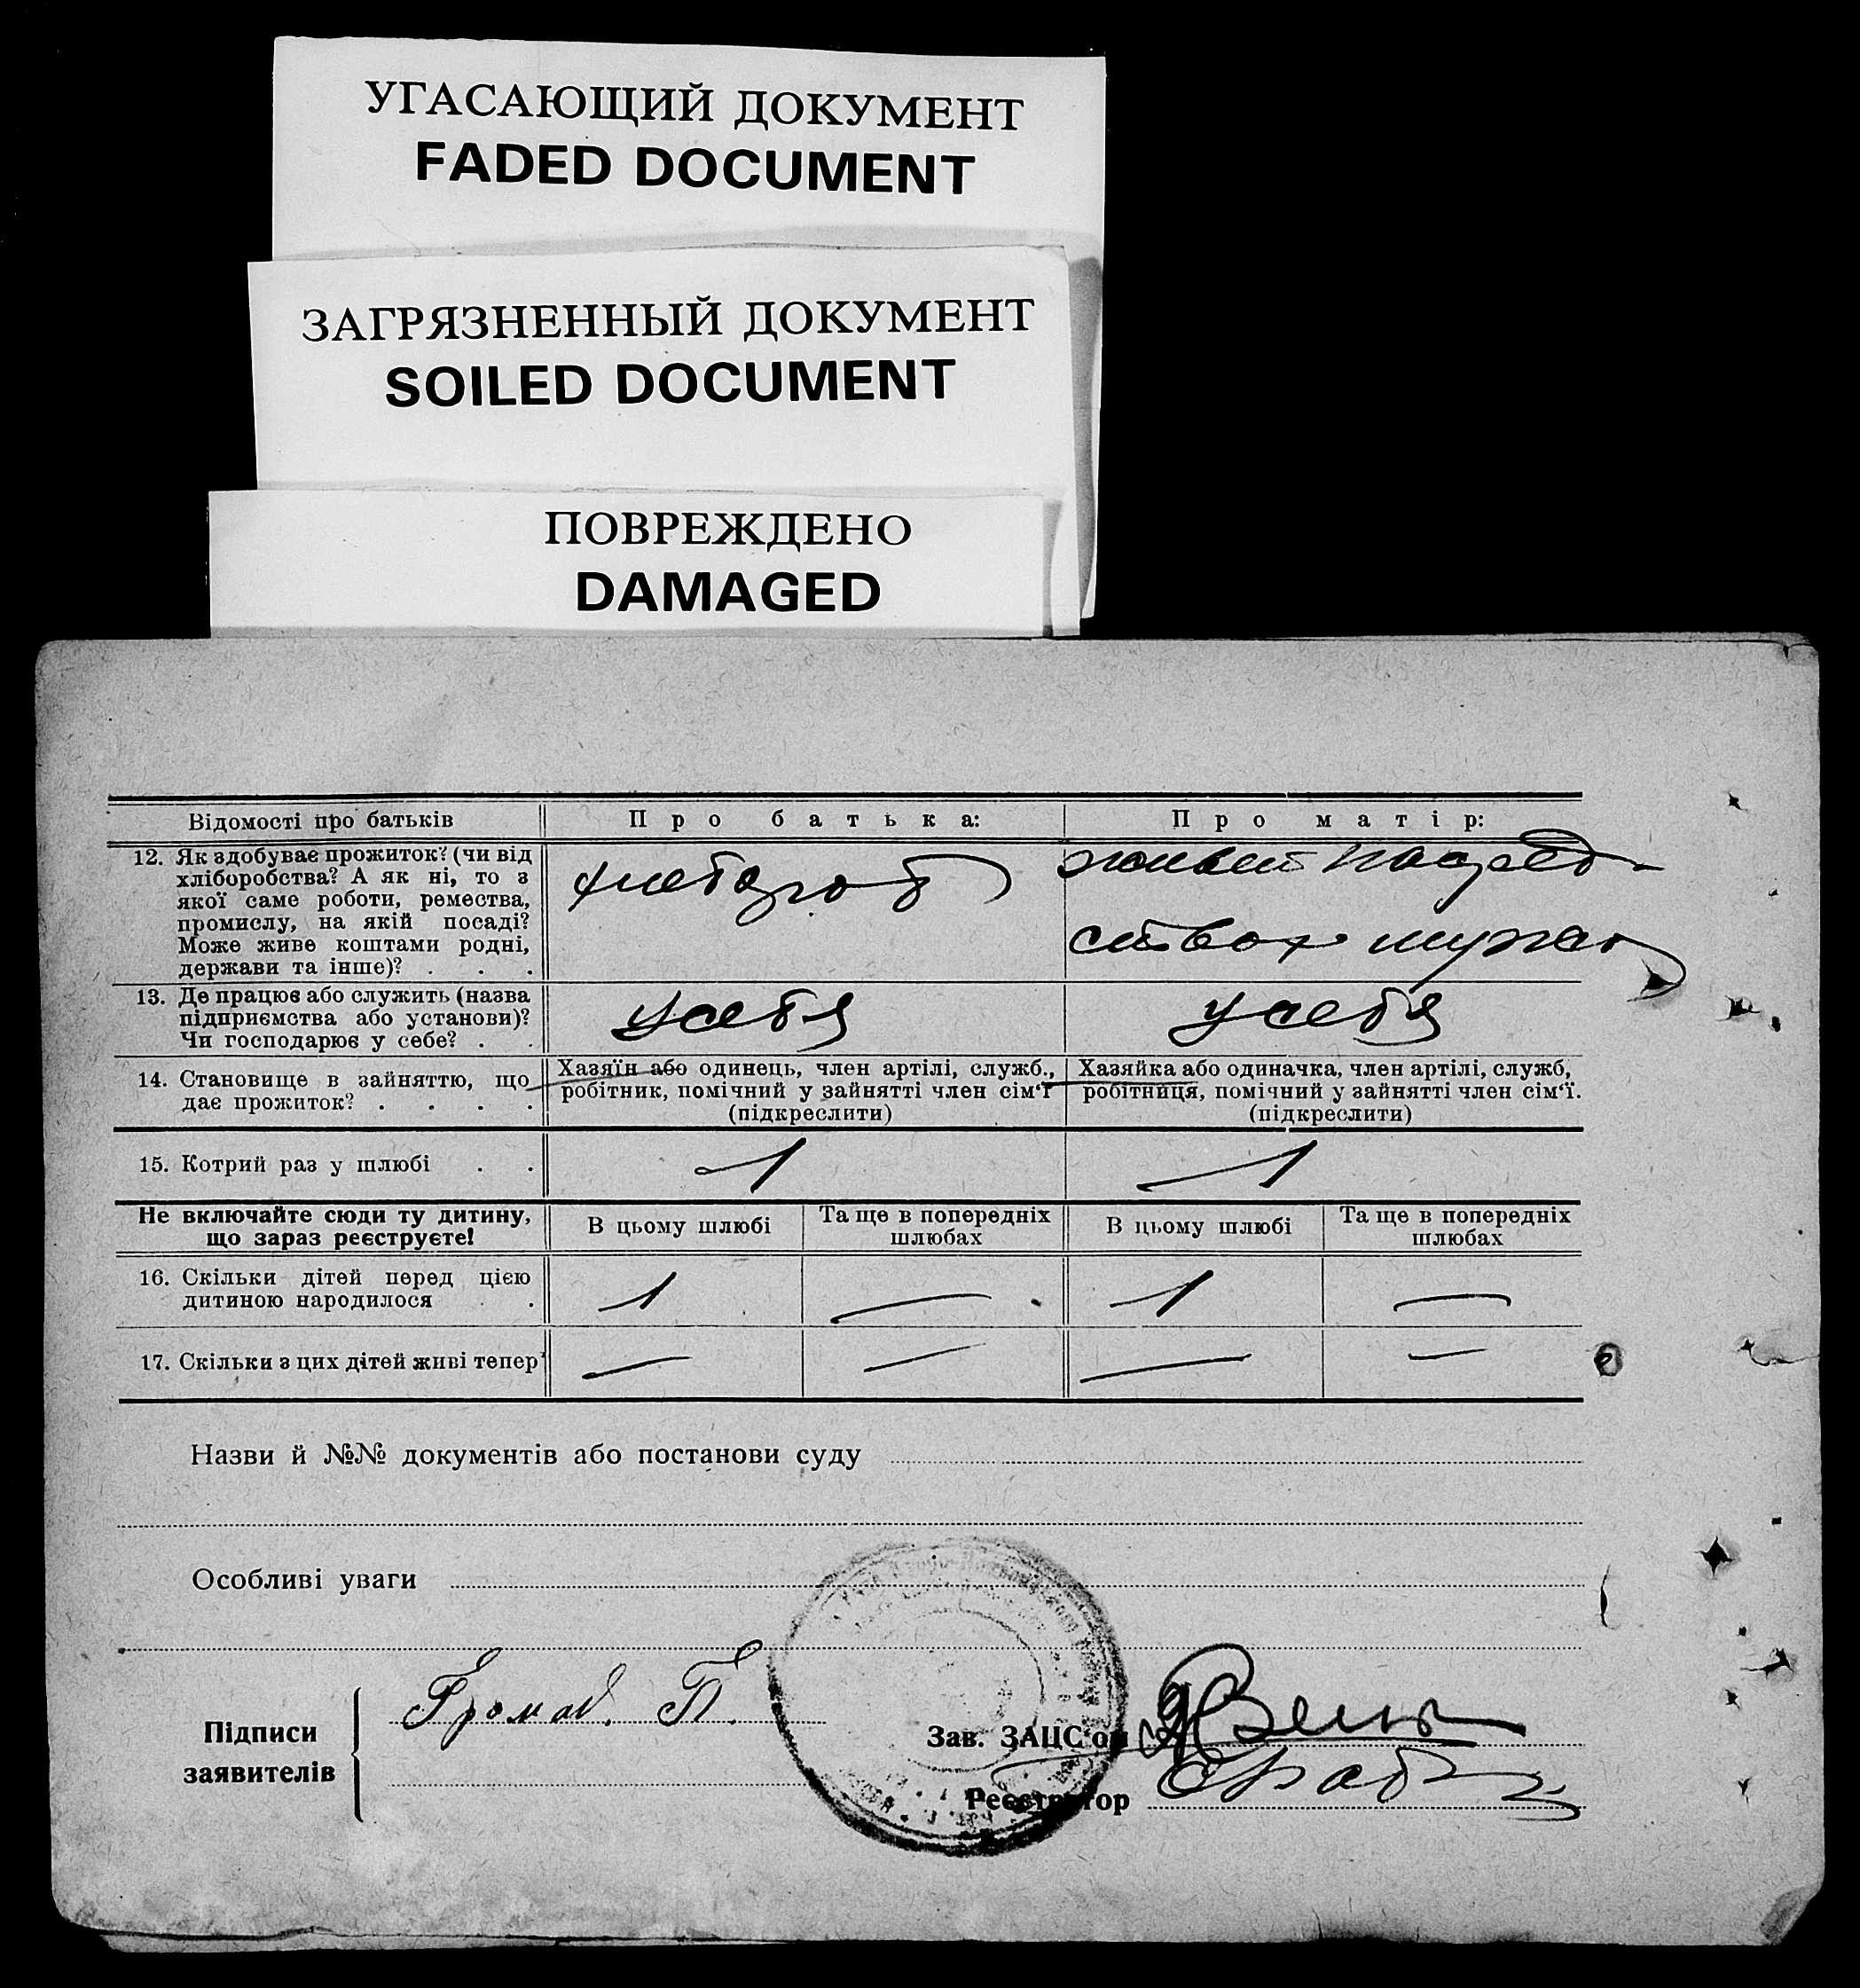 УГАСАЮЩИЙ ДОКУМЕНТ
FADED DOCUMENT
ЗАГРЯЗНЕННЫЙ ДОКУМЕНТ
SOILED DOCUMENT
ПОВРЕЖДЕНО
DAMAGED
Відомості про батьків
Про батька:
Про матір:
12. Як здобуває прожиток? (чи від
хліборобства? А як ні, то з
якої саме роботи, ремества,
промислу, на якій посаді?
Може живе коштами родні,
держави та інше)? . . .
хлебороб
живет
ствах мужа
13. Де працює або служить (назва
підприємства або установи)?
Чи господарює у себе? . .
у себя
у себя
14. Становище в зайняттю, що
дає прожиток? . . . .
Хазяїн або одинець, член артілі, служб.,
робітник, помічний у зайнятті член сім'ї
(підкреслити)
Хазяйка або одиначка, член артілі, служб,
робітниця, помічний у зайнятті член сім'ї.
(підкреслити)
15. Котрий раз у шлюбі . .
1
1
Не включайте сюди ту дитину,
що зараз реєструєте!
В цьому шлюбі
Та ще в попередніх
шлюбах
В цьому шлюбі
Та ще в попередніх
шлюбах
16. Скільки дітей перед цією
дитиною народилося . .
1
—
1
—
17. Скільки з цих дітей живі тепер
—
—
—
—
Назви й №№ документів або постанови суду
Особливі уваги
Підписи
заявителів
Громов. П.
Зав. ЗАЦС'ом
Реєстратор